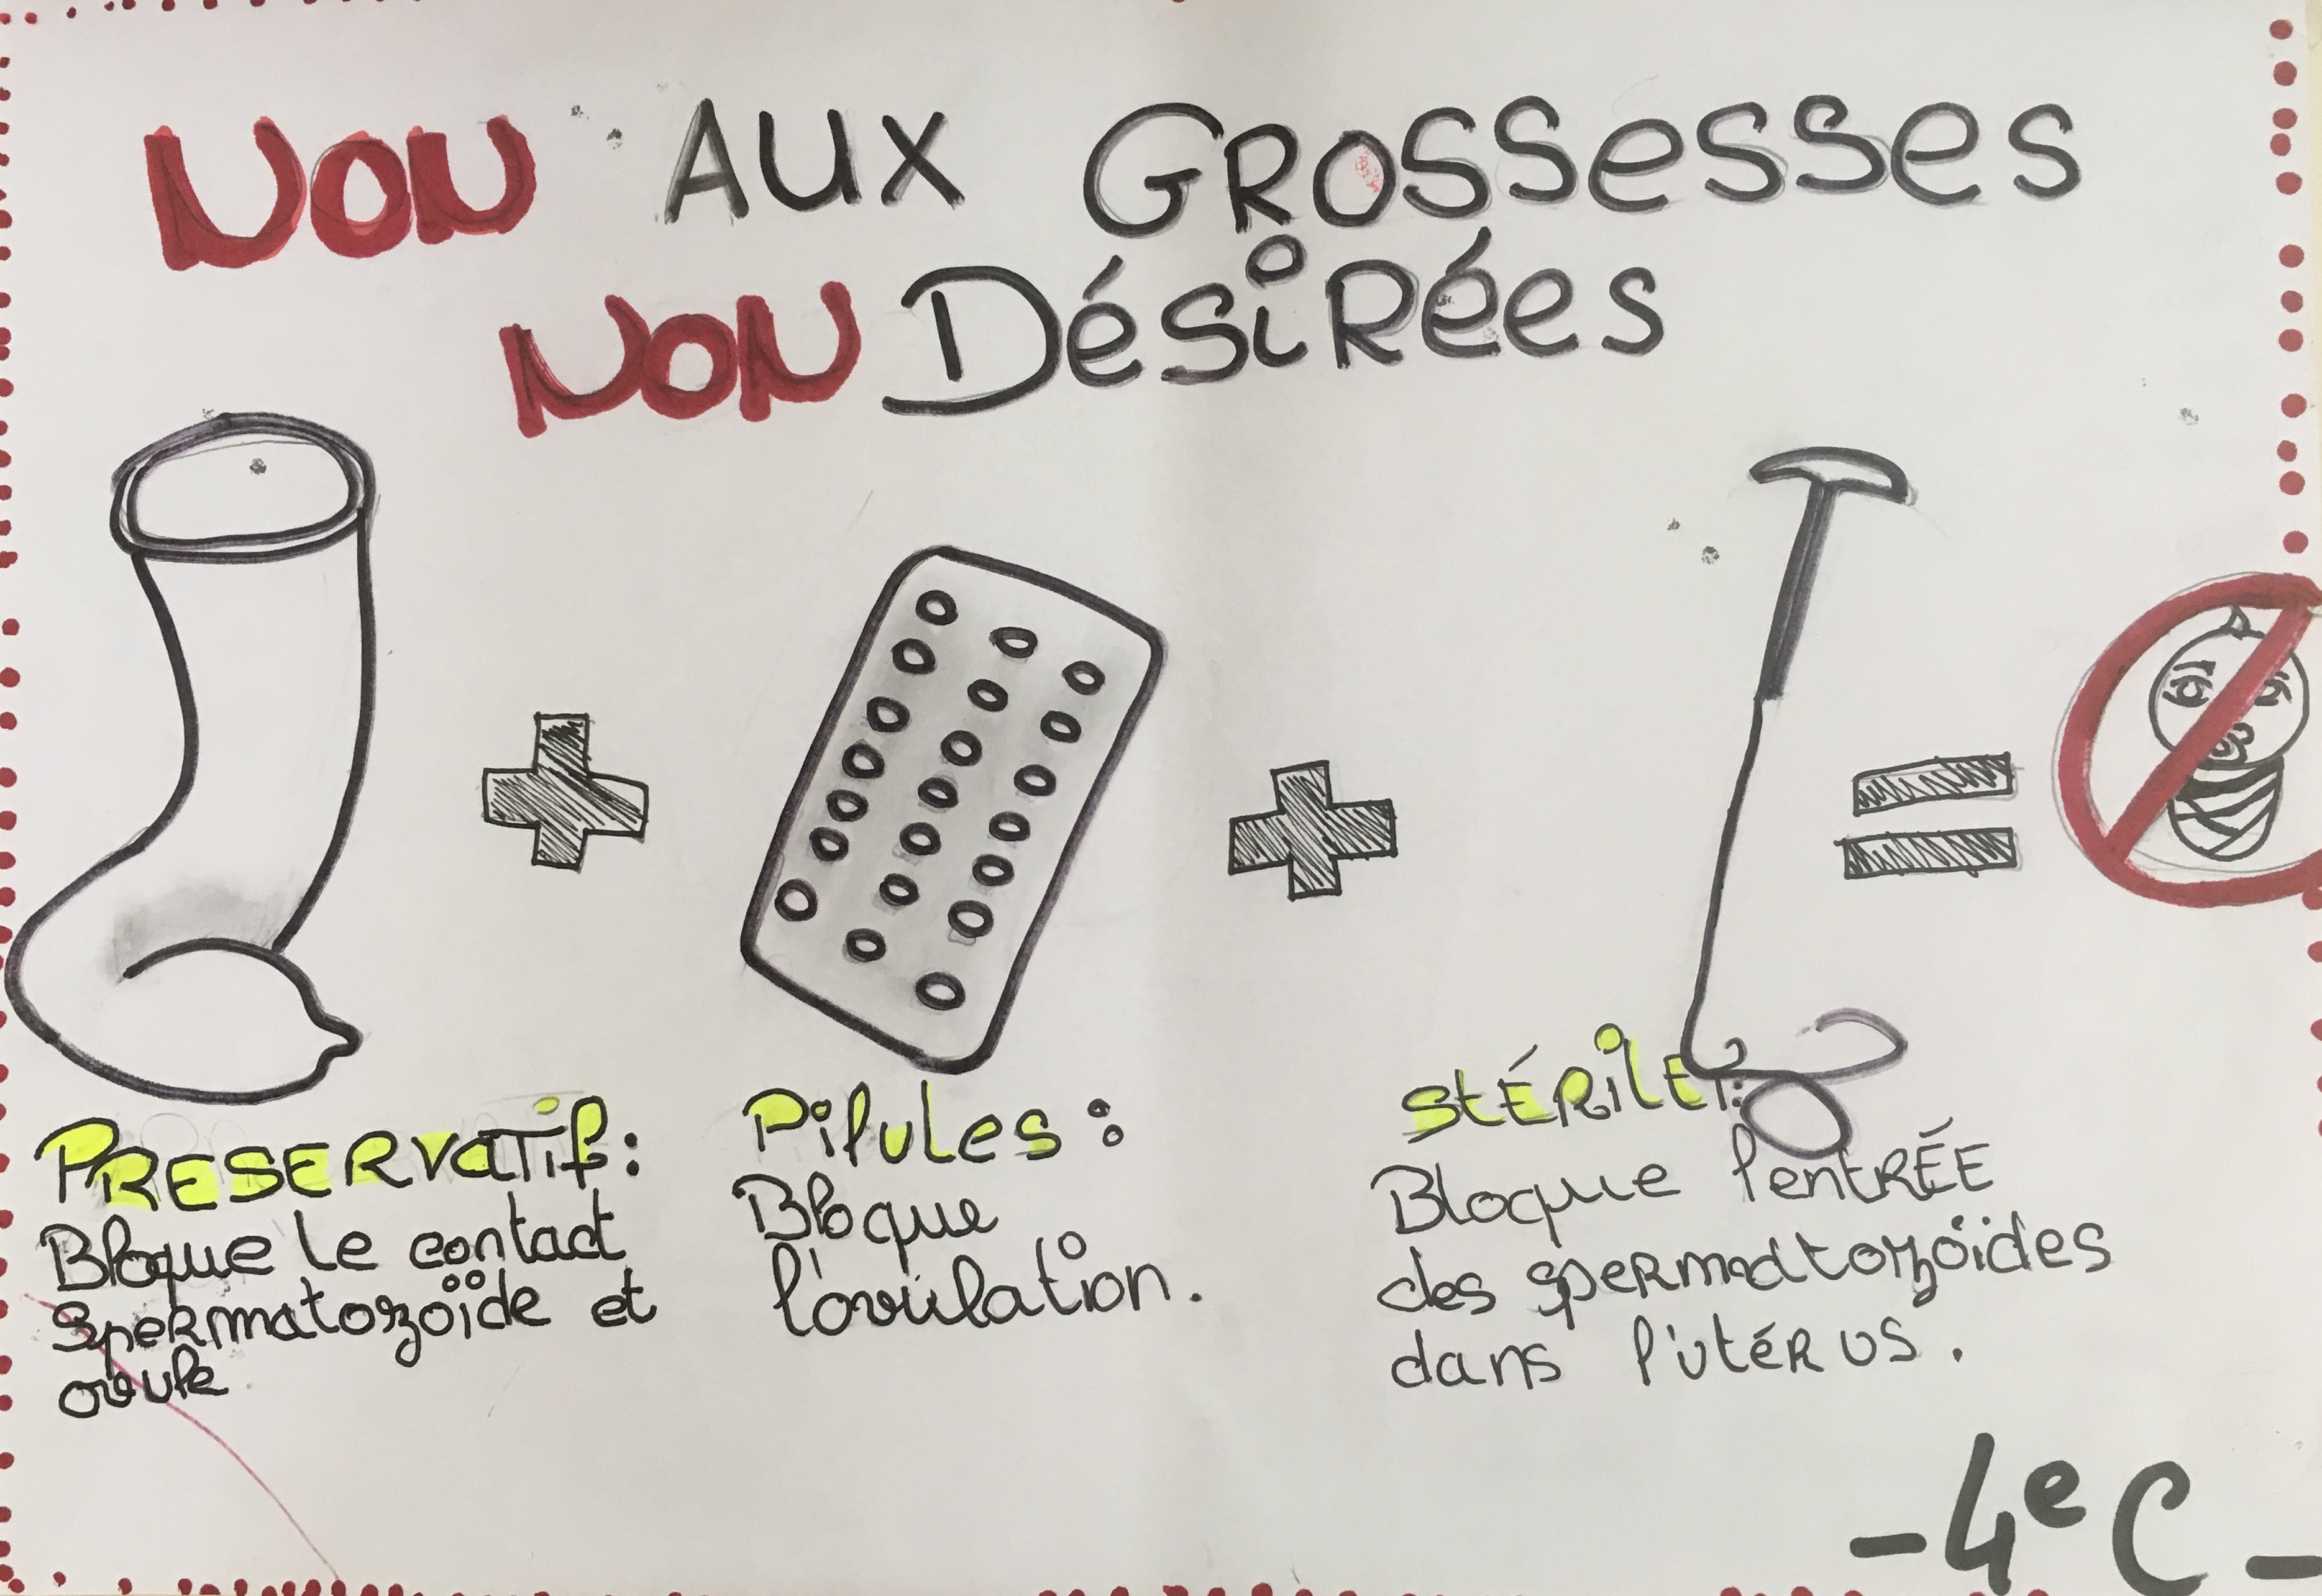 NON AUX GROSSESSES
NON DÉSIRÉES
PRESERVATIF:
Bloque le contact
spermatozoïde et
ovule
Pilules:
Bloque
l'ovulation.
STÉRILET:
Bloque l'entRÉE
des spermatozoïdes
dans l'utéRUS.
-4e C-